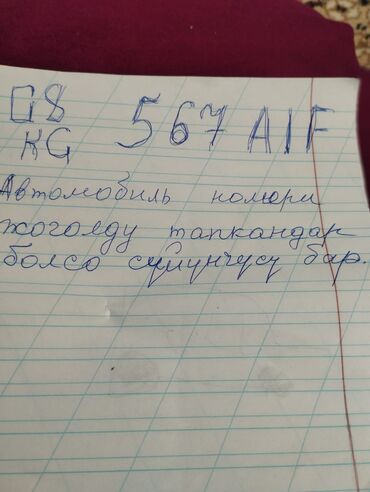 08 567 AIF
KG
Автомобиль номери
жоголду тапкандар
болсо сүйүнчүсү бар.